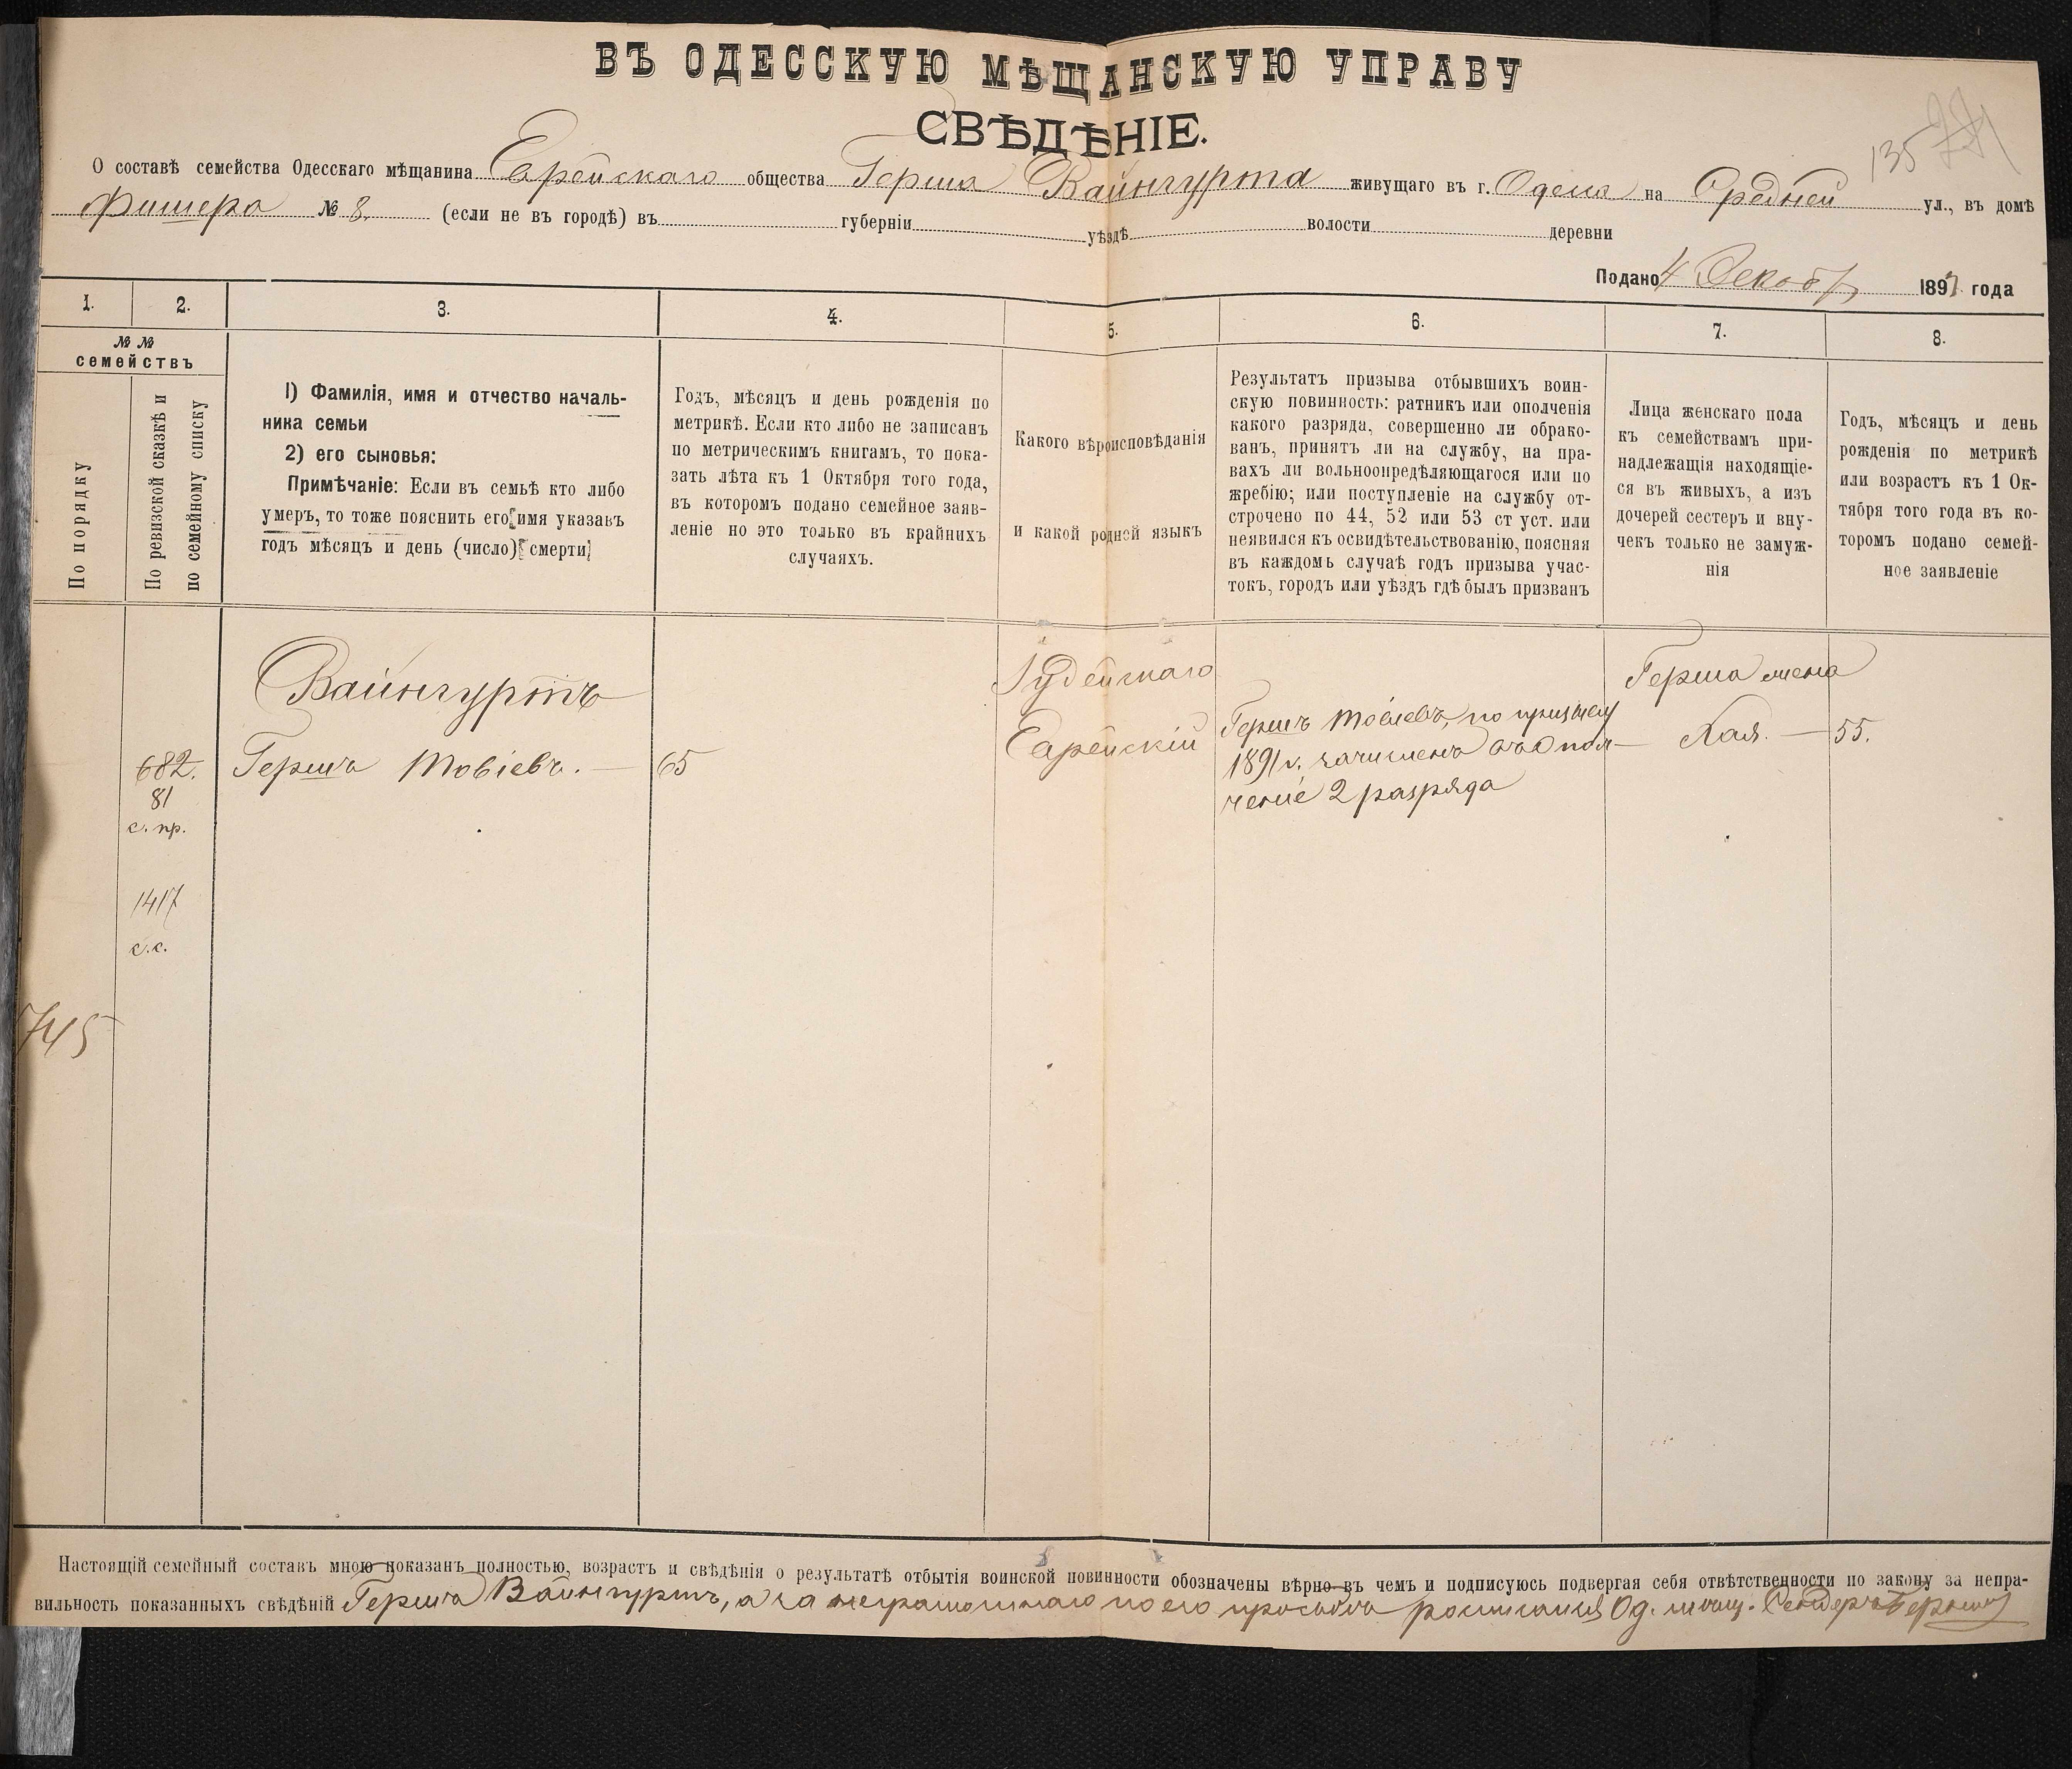 ВЪ ОДЕССКУЮ МѢЩАНСКУЮ УПРАВУ
СВѢДѢНІЕ.
135
О составѣ семейства Одесскаго мѣщанина Еврейскаго общества Герша Вайнгурта живущаго въ г. Одесса на Средней ул., въ домѣ
Фишера № 8. (если не въ городѣ) въ губерніи уѣздѣ волости деревни
Подано 4 Декабр 1897 года
1. 2. 3. 4. 5. 6. 7. 8.
№ №
семействъ
По порядку
По ревизской сказкѣ и
по семейному списку
1) Фамилія, имя и отчество началь-
ника семьи
2) его сыновья:
Примѣчаніе: Если въ семьѣ кто либо
умеръ, то тоже пояснить его имя указавъ
годъ мѣсяцъ и день (число) смерти
Годъ, мѣсяцъ и день рожденія по
метрикѣ. Если кто либо не записанъ
по метрическимъ книгамъ, то пока-
зать лѣта къ 1 Октября того года,
въ которомъ подано семейное заяв-
леніе но это только въ крайнихъ
случаяхъ.
Какого вѣроисповѣданія
и какой родной языкъ
Результатъ призыва отбывшихъ воин-
скую повинность: ратникъ или ополченія
какого разряда, совершенно ли обрако-
ванъ, принятъ ли на службу, на пра-
вахъ ли вольноопредѣляющагося или по
жребію; или поступленіе на службу от-
строчено по 44, 52 или 53 ст уст. или
неявился къ освидѣтельствованію, поясняя
въ каждомъ случаѣ годъ призыва учас-
токъ, городъ или уѣздъ гдѣ былъ призванъ
Лица женскаго пола
къ семействамъ при-
надлежащія находящіе-
ся въ живыхъ, а изъ
дочерей сестеръ и вну-
чекъ только не замуж-
нія
Годъ, мѣсяцъ и день
рожденія по метрикѣ
или возрастъ къ 1 Ок-
тября того года въ ко-
торомъ подано семей-
ное заявленіе
682.
81
с. пр.
1417
с.с.
745
Вайнгуртъ
Гершъ Товіевъ. — 65
Іудейскаго
Еврейскій
Гершъ Товіевъ, по призыву
1891 г. зачисленъ въ Опол-
ченіе 2 разряда
Герша жена
Хая. — 55.
Настоящій семейный составъ мною показанъ полностью, возрастъ и свѣдѣнія о результатѣ отбытія воинской повинности обозначены вѣрно въ чемъ и подписуюсь подвергая себя отвѣтственности по закону за непра-
вильность показанныхъ свѣдѣній Гершъ Вайнгуртъ, а за неграмотнаго по его просьбѣ росписался Од. мѣщ.